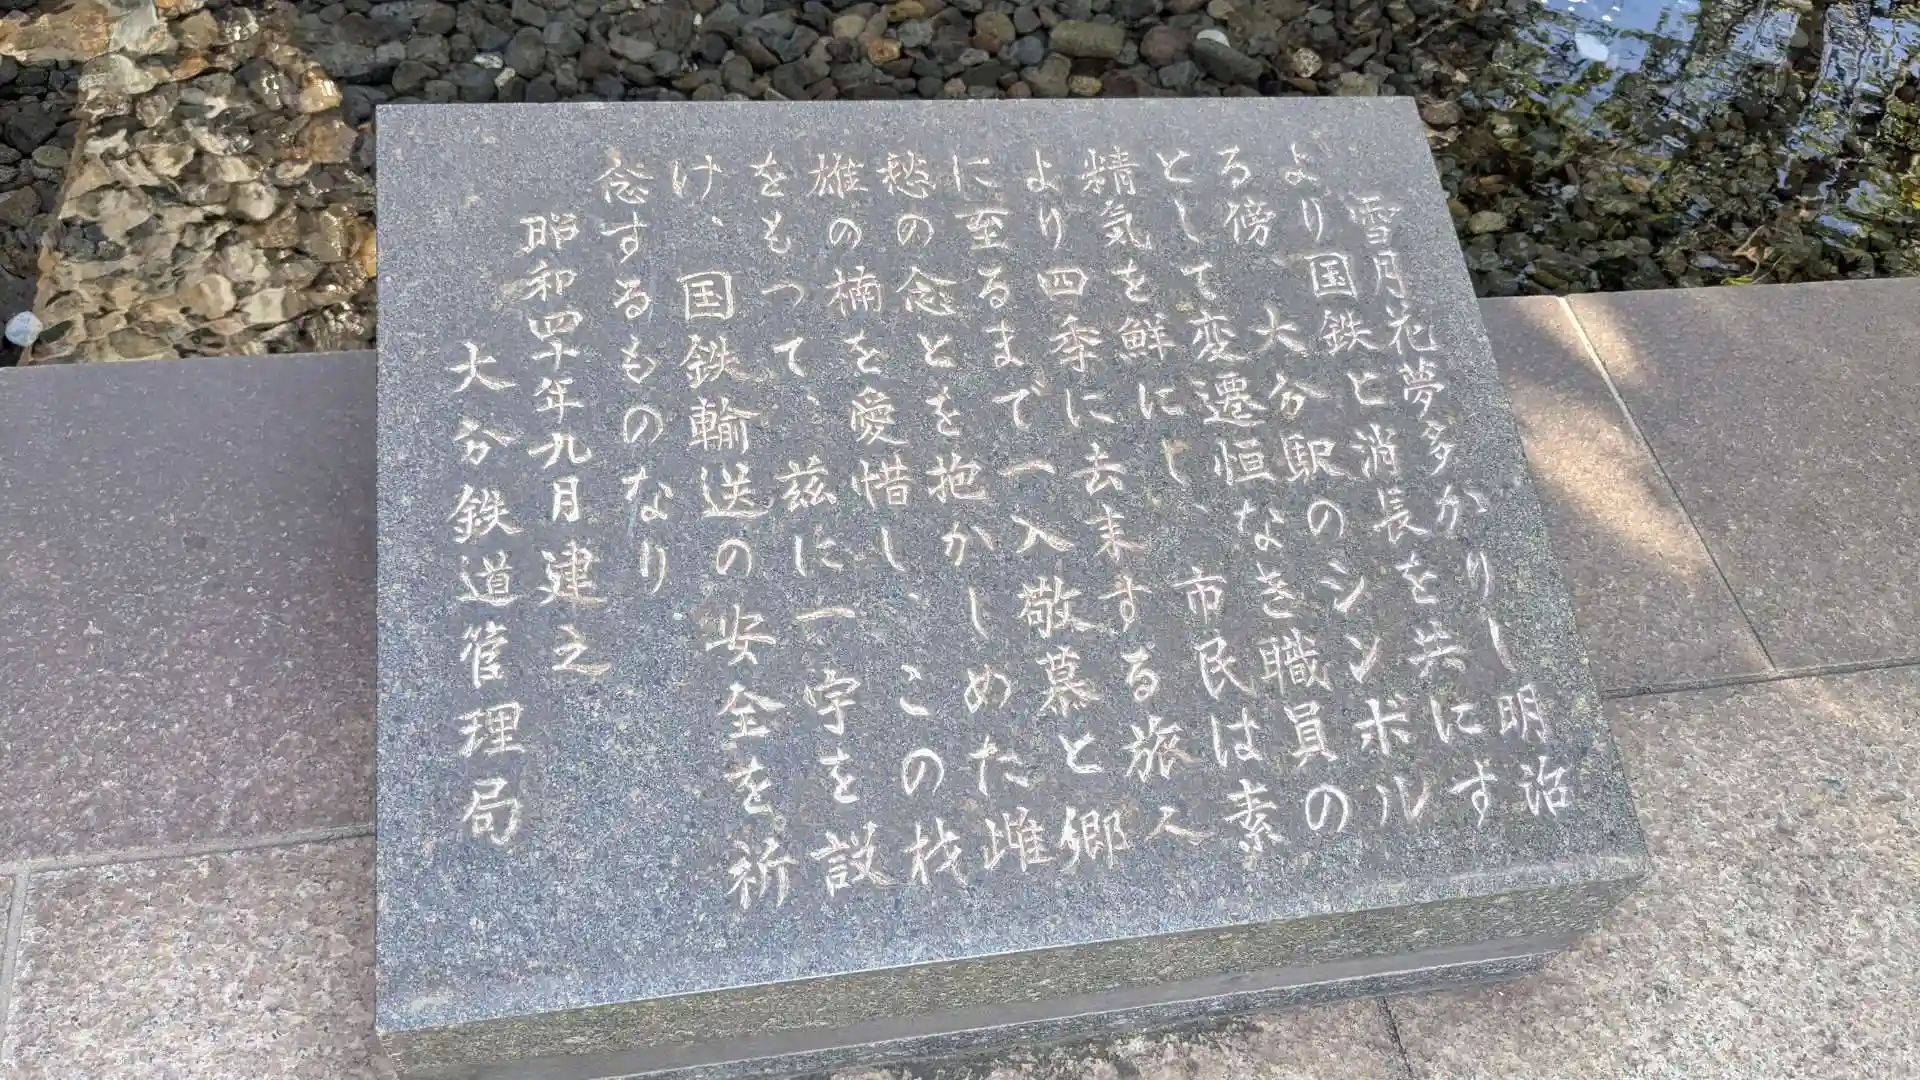 雪月花夢多かりし明治
より国鉄と消長を共にす
る傍、大分駅のシンボル
として変遷恒なき職員の
精気を鮮にし、市民は素
より四季に去来する旅人
に至るまで一入敬慕と郷
愁の念とを抱かしめた雌
雄の楠を愛惜し、この枝
をもって、茲に一宇を設
け、国鉄輸送の安全を祈
念するものなり
昭和四十年九月建之
大分鉄道管理局